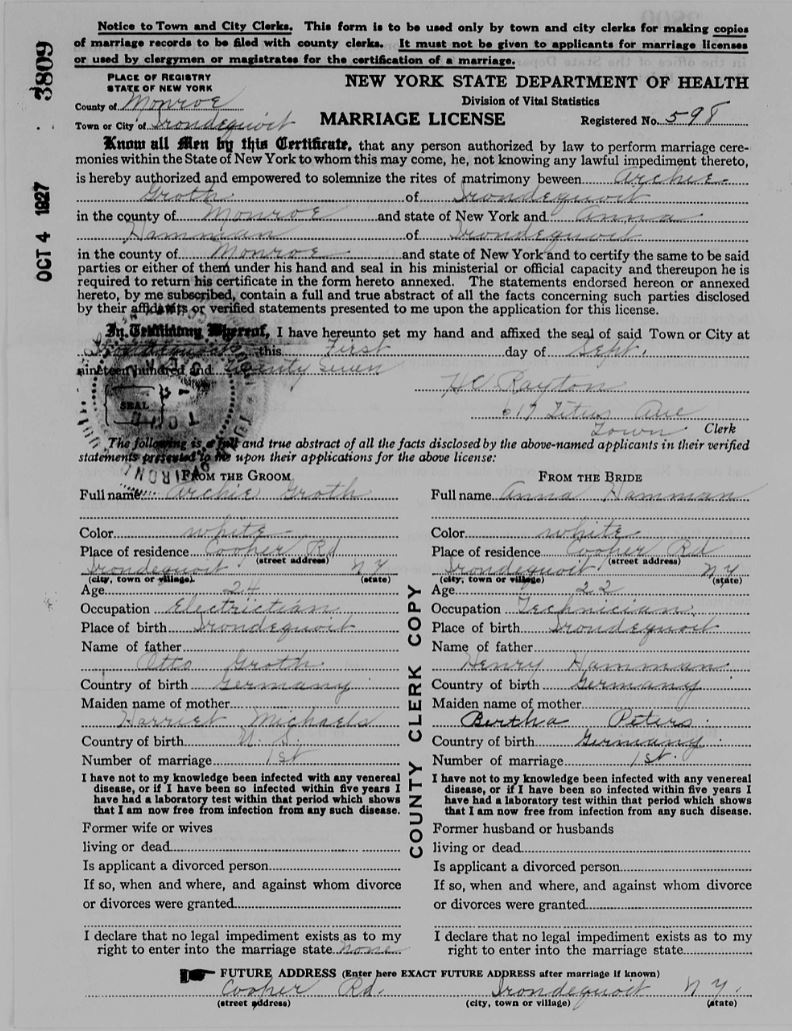 Notice to Town and City Clerks. This form is to be used only by town and city clerks for making copies
of marriage records to be filed with county clerks. It must not be given to applicants for marriage licenses
or used by clergymen or magistrates for the certification of a marriage.
3809
OCT 4 1927
PLACE OF REGISTRY
STATE OF NEW YORK
County of Monroe
Town or City of Irondequoit
NEW YORK STATE DEPARTMENT OF HEALTH
Division of Vital Statistics
MARRIAGE LICENSE
Registered No. 598
Know all Men by this Certificate, that any person authorized by law to perform marriage cere-
monies within the State of New York to whom this may come, he, not knowing any lawful impediment thereto,
is hereby authorized and empowered to solemnize the rites of matrimony beween Archie
Groth of Irondequoit
in the county of Monroe and state of New York and Anna
Hamman of Irondequoit
in the county of Monroe and state of New York and to certify the same to be said
parties or either of them under his hand and seal in his ministerial or official capacity and thereupon he is
required to return his certificate in the form hereto annexed. The statements endorsed hereon or annexed
hereto, by me subscribed, contain a full and true abstract of all the facts concerning such parties disclosed
by their affidavits or verified statements presented to me upon the application for this license.
In Testimony Whereof, I have hereunto set my hand and affixed the seal of said Town or City at
this First day of Sept.
nineteen hundred and twenty seven
SEAL
Titus Ave
Town Clerk
The following is a full and true abstract of all the facts disclosed by the above-named applicants in their verified
statements presented to me upon their applications for the above license:
FROM THE GROOM
Full name Archie Groth
Color white
Place of residence Cooper Rd
(street address)
Irondequoit NY
(city, town or village) (state)
Age 24
Occupation Electrictian
Place of birth Irondequoit
Name of father
Otto Groth
Country of birth Germany
Maiden name of mother
Harriet Michaels
Country of birth U.S.
Number of marriage 1st
I have not to my knowledge been infected with any venereal
disease, or if I have been so infected within five years I
have had a laboratory test within that period which shows
that I am now free from infection from any such disease.
Former wife or wives
living or dead
Is applicant a divorced person
If so, when and where, and against whom divorce
or divorces were granted
I declare that no legal impediment exists as to my
right to enter into the marriage state none
COUNTY CLERK COPY
FROM THE BRIDE
Full name Anna Hamman
Color white
Place of residence Cooper Rd
(street address)
Irondequoit NY
(city, town or village) (state)
Age 22
Occupation Technician
Place of birth Irondequoit
Name of father
Henry Hamman
Country of birth Germany
Maiden name of mother
Bertha Peters
Country of birth Germany
Number of marriage 1st.
I have not to my knowledge been infected with any venereal
disease, or if I have been so infected within five years I
have had a laboratory test within that period which shows
that I am now free from infection from any such disease.
Former husband or husbands
living or dead
Is applicant a divorced person
If so, when and where, and against whom divorce
or divorces were granted
I declare that no legal impediment exists as to my
right to enter into the marriage state
FUTURE ADDRESS (Enter here EXACT FUTURE ADDRESS after marriage if known)
Cooper Rd. Irondequoit NY.
(street address) (city, town or village) (state)